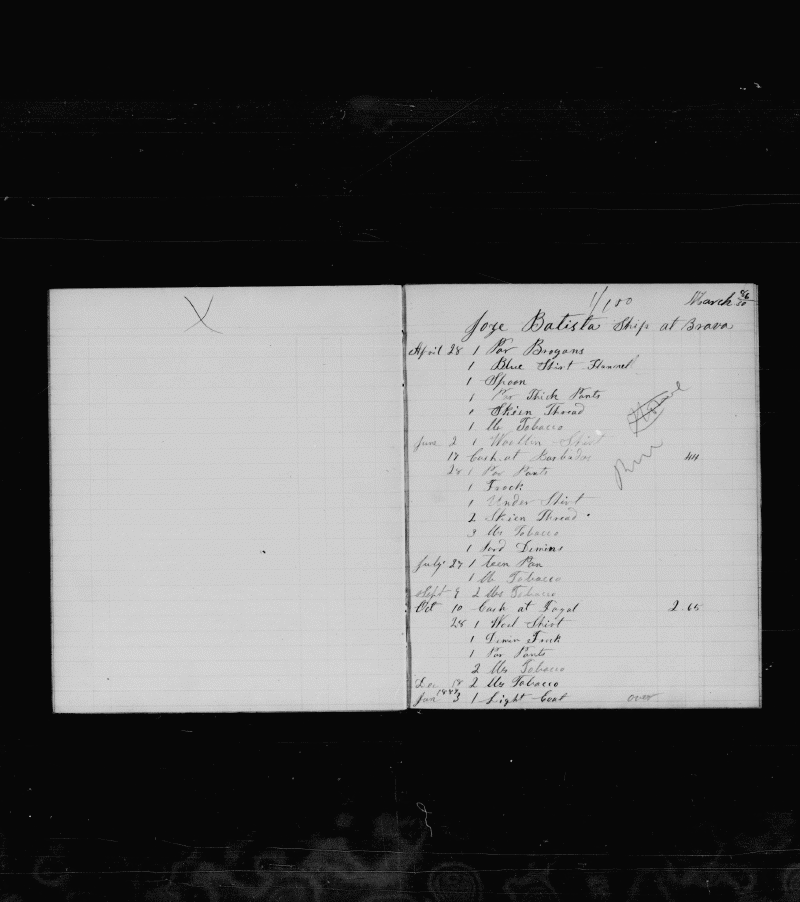 X
1/180 March 86 20
Joze Batista Ship at Brava
April 28 1 Par Brogans
1 Blue Shirt Flannel
1 Spoon
1 Par Thick Pants
1 Skien Thread
1 lb Tobacco
June 2 1 Woollen Shirt
17 Cash at Barbados 44
28 1 Par Pants
1 Frock
1 Under Shirt
2 Skien Thread
3 lbs Tobacco
1 Demins
July 27 1 teen Pan
1 lb Tobacco
Sept 9 2 lbs Tobacco
Oct 10 Cash at Fayal 2.65
28 1 Wool Shirt
1 Demin Frock
1 Par Pants
2 lbs Tobacco
Dec 18 2 lbs Tobacco
Jan 1887 3 1 Light Coat over